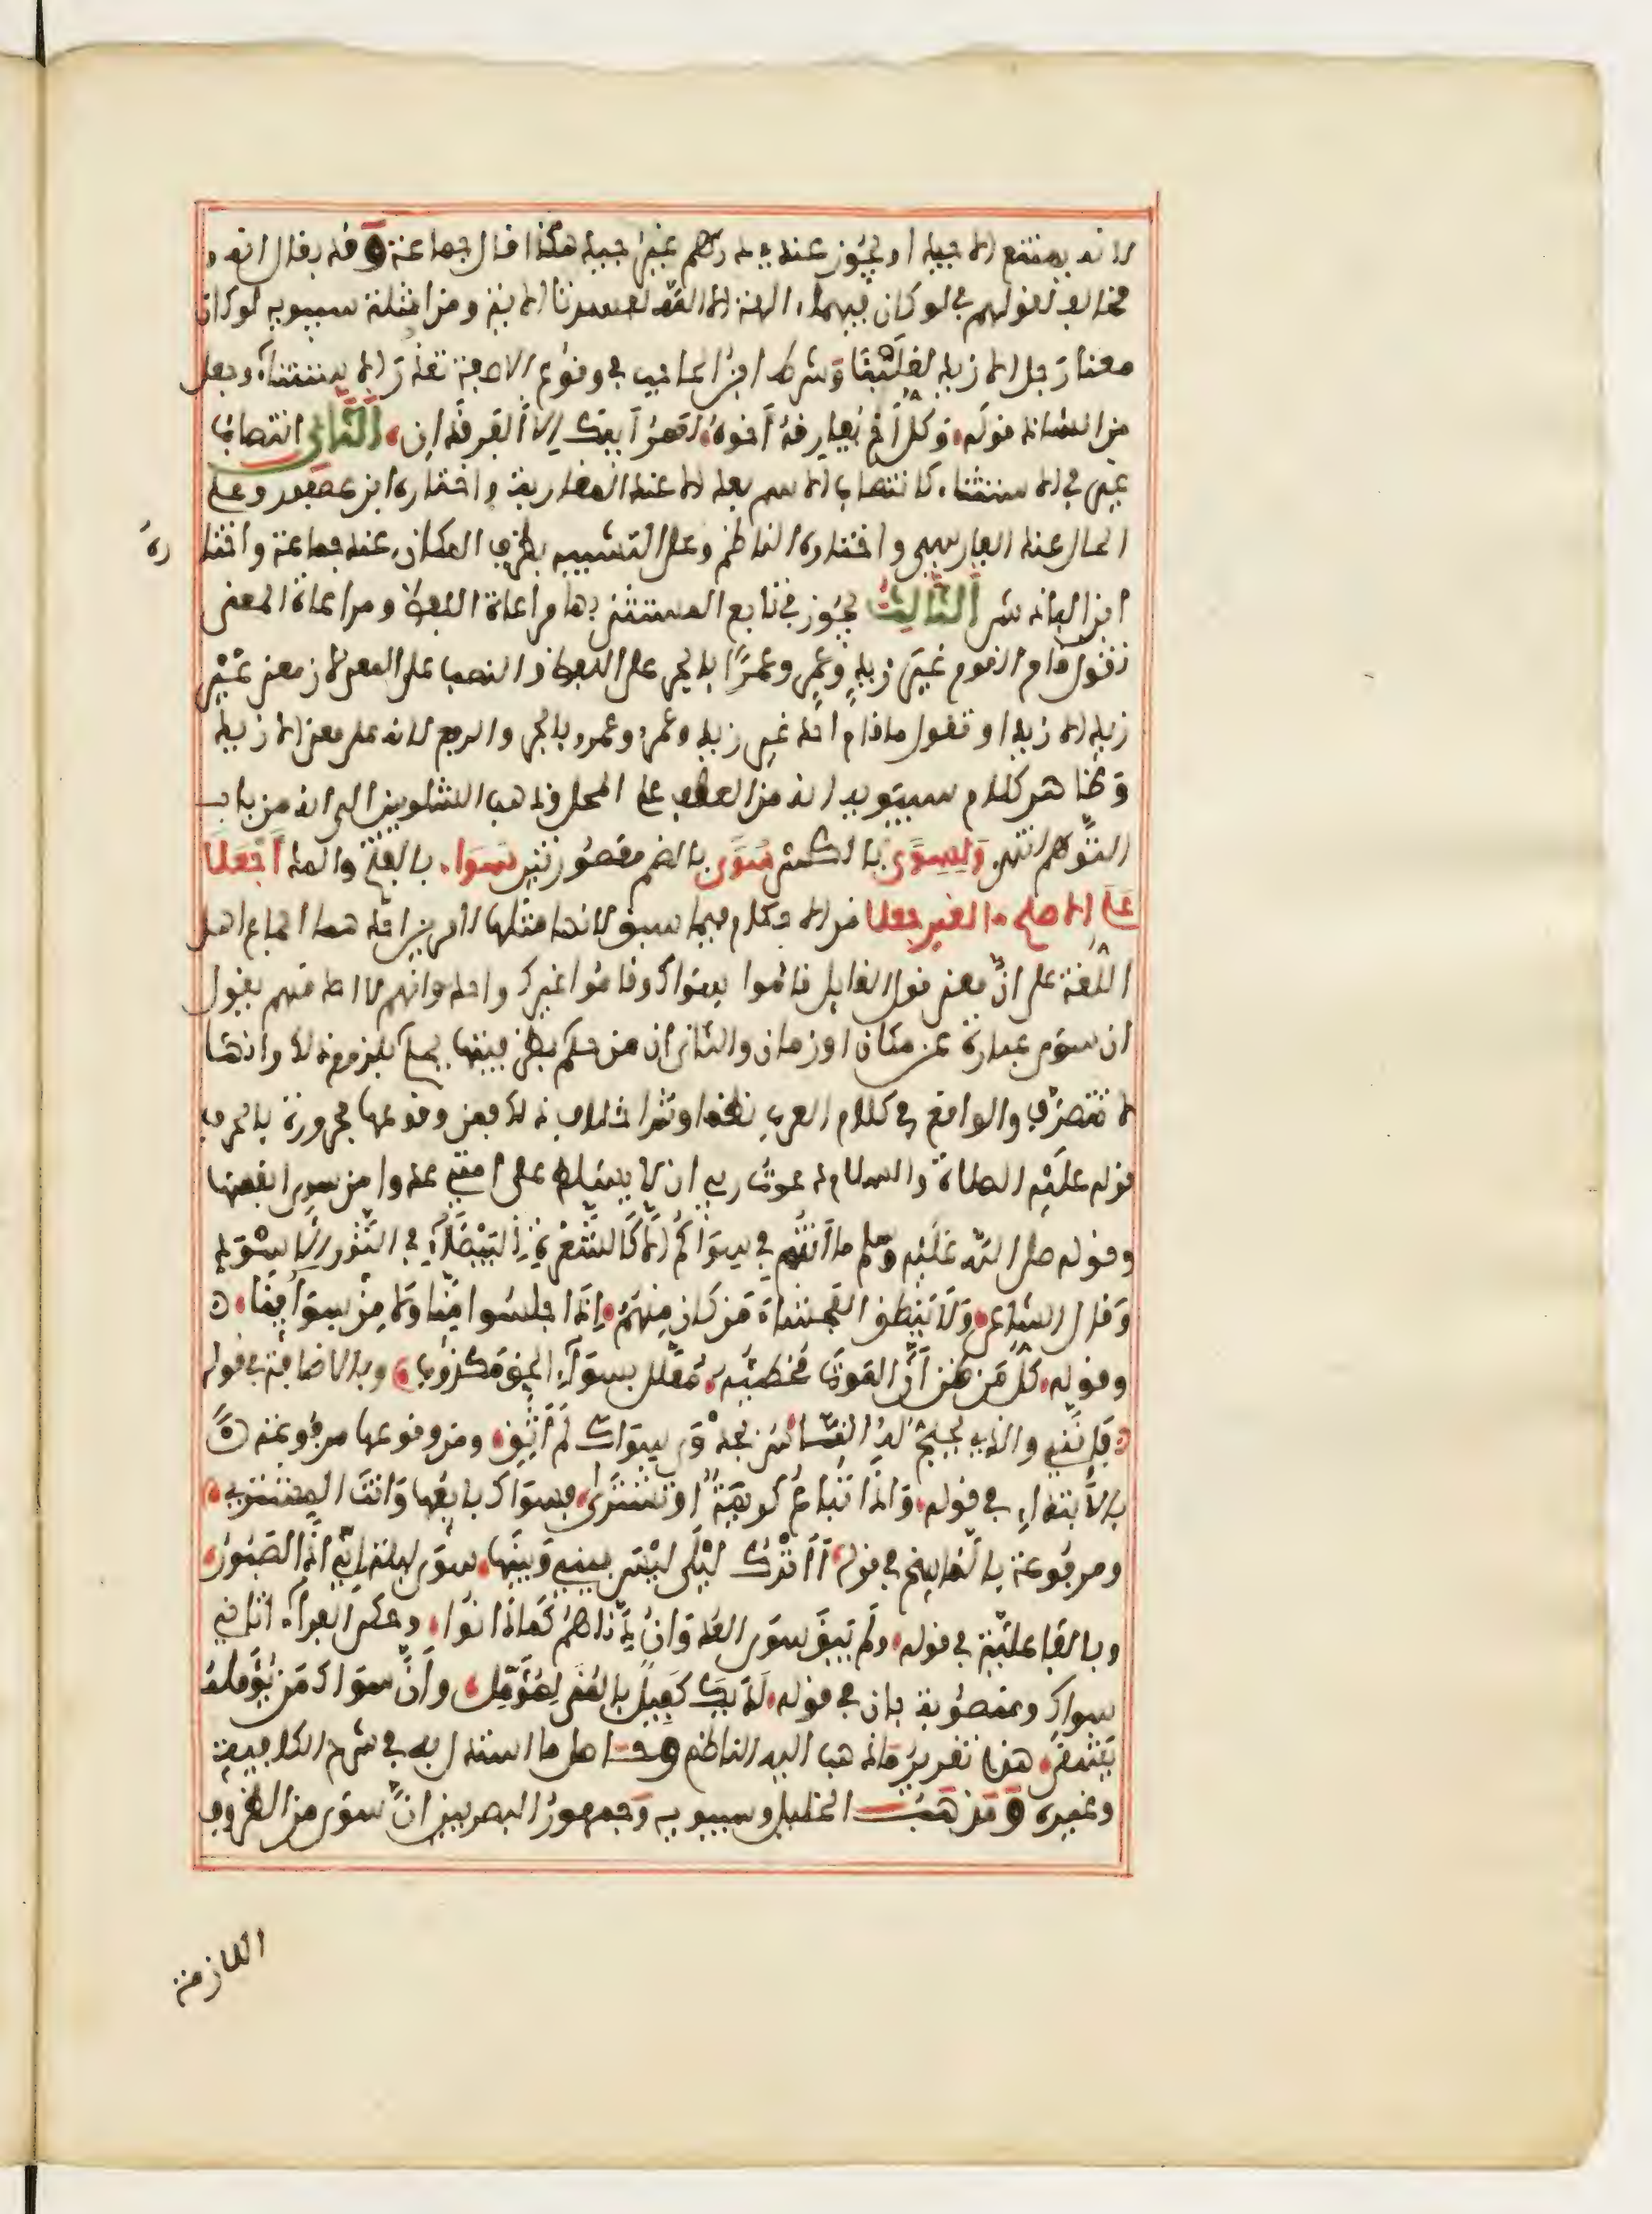 لانه يمتنع الا جيد او يجوز عندي درهم غير جيد هكذا قال جماعة وقد يقال انه
مخالف لقولهم في لو كان فيهما الهة الا الله لفسدتا الاية ومن امثلة سيبويه لو كان
معنا رجل الا زيد لغلبنا وشرط ابن الحاجب في وقوع الا صفة تعذر الاستثناء وجعل
من الشاذ قوله وكل اخ مفارقه اخوه لعمر ابيك الا الفرقدان الثاني انتصاب
غير في الاستثناء كانتصاب الاسم بعد الا عند المغاربة واختاره ابن عصفور وعلى
الحال عند الفارسي واختاره الناظم وعلى التشبيه بظرف المكان عند جماعة واختا ره
ابن الباذش الثالث يجوز في تابع المستثنى بها مراعاة اللفظ ومراعاة المعنى
تقول قام القوم غير زيد وعمر وعمرا بالجر على اللفظ والنصب على المعنى لان معنى غير
زيد الا زيدا وتقول ما قام احد غير زيد وعمر وعمرو بالجر والرفع لانه على معنى الا زيد
وظاهر كلام سيبويه انه من العطف على المحل وذهب الشلوبين الى انه من باب
التوهم انتهى ولسوى بالكسر سوى بالضم مقصورتين سواء بالفتح والمد اجعلا
على الاصح ما لغير جعلا من الاحكام فيما سبق لانها مثلها لامرين احدهما اجماع اهل
اللغة على ان معنى قول القايل قاموا سواك وقاموا غيرك واحد وانهم لا احد منهم يقول
ان سوى عبارة عن مكان او زمان والثاني ان من حكم بظرفيتها يحكم بلزوم ذلك وانها
لا تتصرف والواقع في كلام العرب نظما ونثرا خلاف ذلك فمن وقوعها مجرورة بالحرف
قوله عليه الصلاة والسلام دعوت ربي ان لا يسلط على امتي عدوا من سوى انفسها
وقوله صلى الله عليه وسلم ما انتم في سواكم الا كالشعرة البيضاء في الثور الاسود
وقال الشاعر ولا ينطق الفحشاء من كان منهم اذا جلسوا منا ولا من سوائنا
وقوله كل من ظن ان الموت مخطيه معلل بسواء الحق مكذوب وبالاضافة في قوله
فانني والذي يحج له الناس بجدوى سواك لم اثق ومن وقوعها مرفوعة
بالابتداء في قوله واذا تباع كريمة او تشترى فسواك بايعها وانت المشتري
ومرفوعة بالناسخ في قوله اأترك ليلى ليس بيني وبينها سوى ليلة اني اذا لصبور
وبالفاعلية في قوله ولم يبق سوى العدوان دناهم كما دانوا وحكى الفراء اتاني
سواك ومنصوبة بان في قوله لديك كفيل بالمنى لمؤمل وان سواك من يؤمله
يشقى هذا تقرير ما ذهب اليه الناظم وحاصل ما استدل به في شرح الكافية
وغيره ومذهب الخليل وسيبويه وجمهور البصريين ان سوى من الظروف
اللازمة